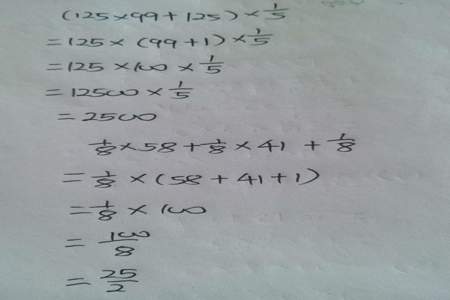 (125×99+125)×1/5
=125×(99+1)×1/5
=125×100×1/5
=12500×1/5
=2500
1/8×58+1/8×41+1/8
=1/8×(58+41+1)
=1/8×100
=100/8
=25/2